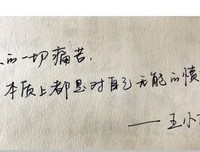 的一切痛苦.
本质上都是对自己无能的愤
——王小